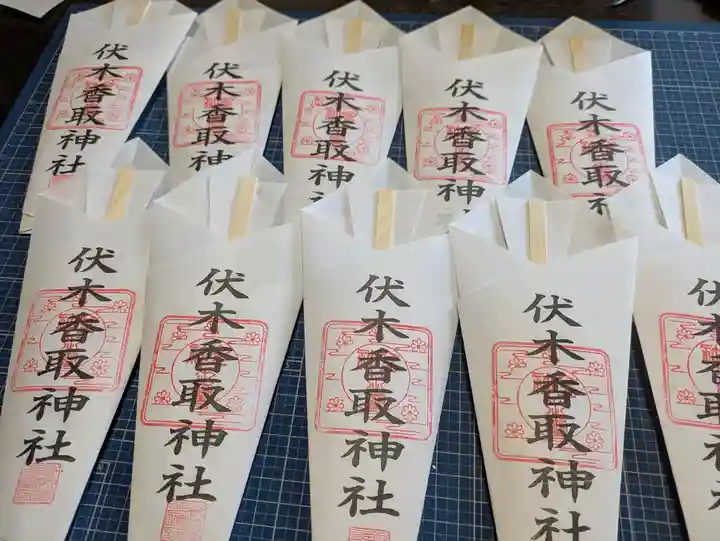 伏木香取神社
伏木香取神
伏木香取神社
伏木香取神
伏木香取神
伏木香取神社
伏木香取神社
伏木香取神社
伏木香取神社
伏木香取神社